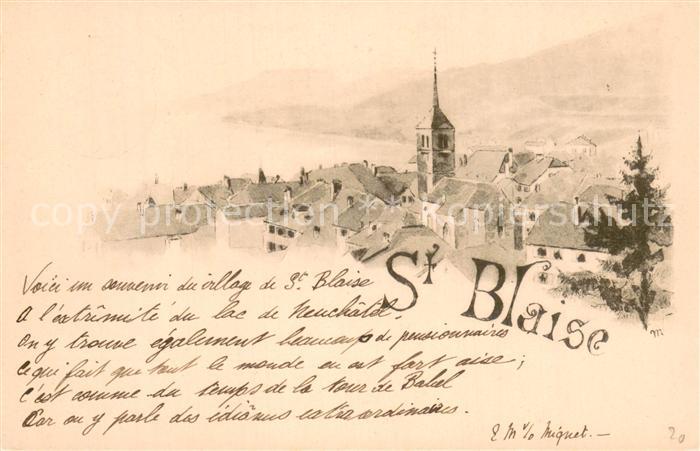 St Blaise
Voici un souvenir du village de St. Blaise
A l'extrêmité du lac de Neuchâtel.
On y trouve également beaucoup de pensionnaires
Ce qui fait que tout le monde en est fort aise;
C'est comme du temps de la tour de Babel
Car on y parle des idiômes extraordinaires.
E M Miquet.—
M
20
copy protection kopierschutz